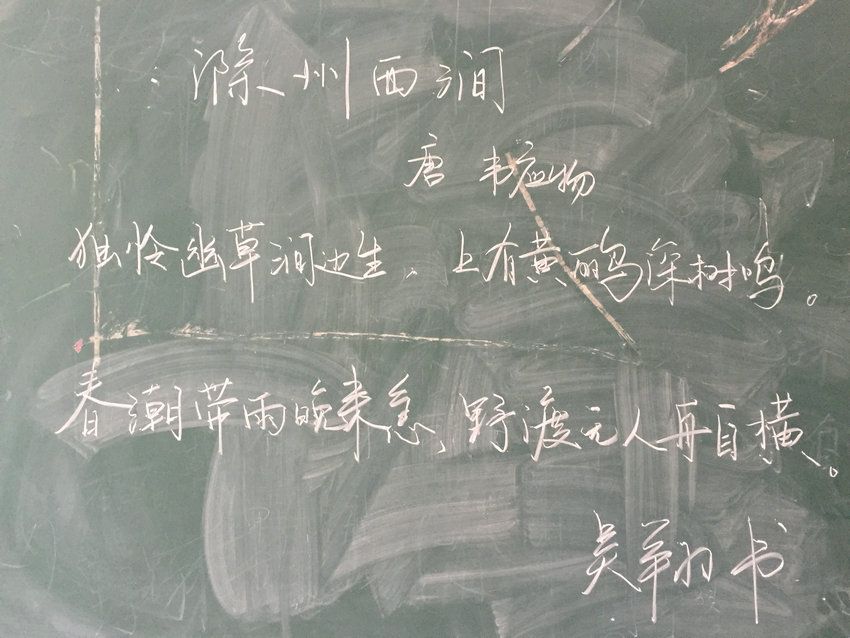 滁州西涧
唐 韦应物
独怜幽草涧边生、上有黄鹂深树鸣。
春潮带雨晚来急、野渡无人舟自横。
吴翔书